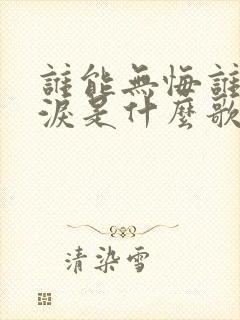 誰能無悔誰
淚是什麼歌
清染雪